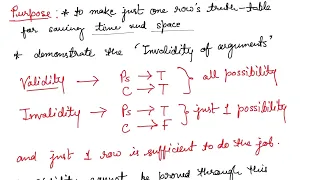 Purpose: * to make just one row's truth-table
for saving time and space
* demonstrate the 'Invalidity of arguments'
Validity → Ps → T } all possibility
C → T
Invalidity → Ps → T } just 1 possibility
C → F
and just 1 row is sufficient to do the job.
cannot be proved through this